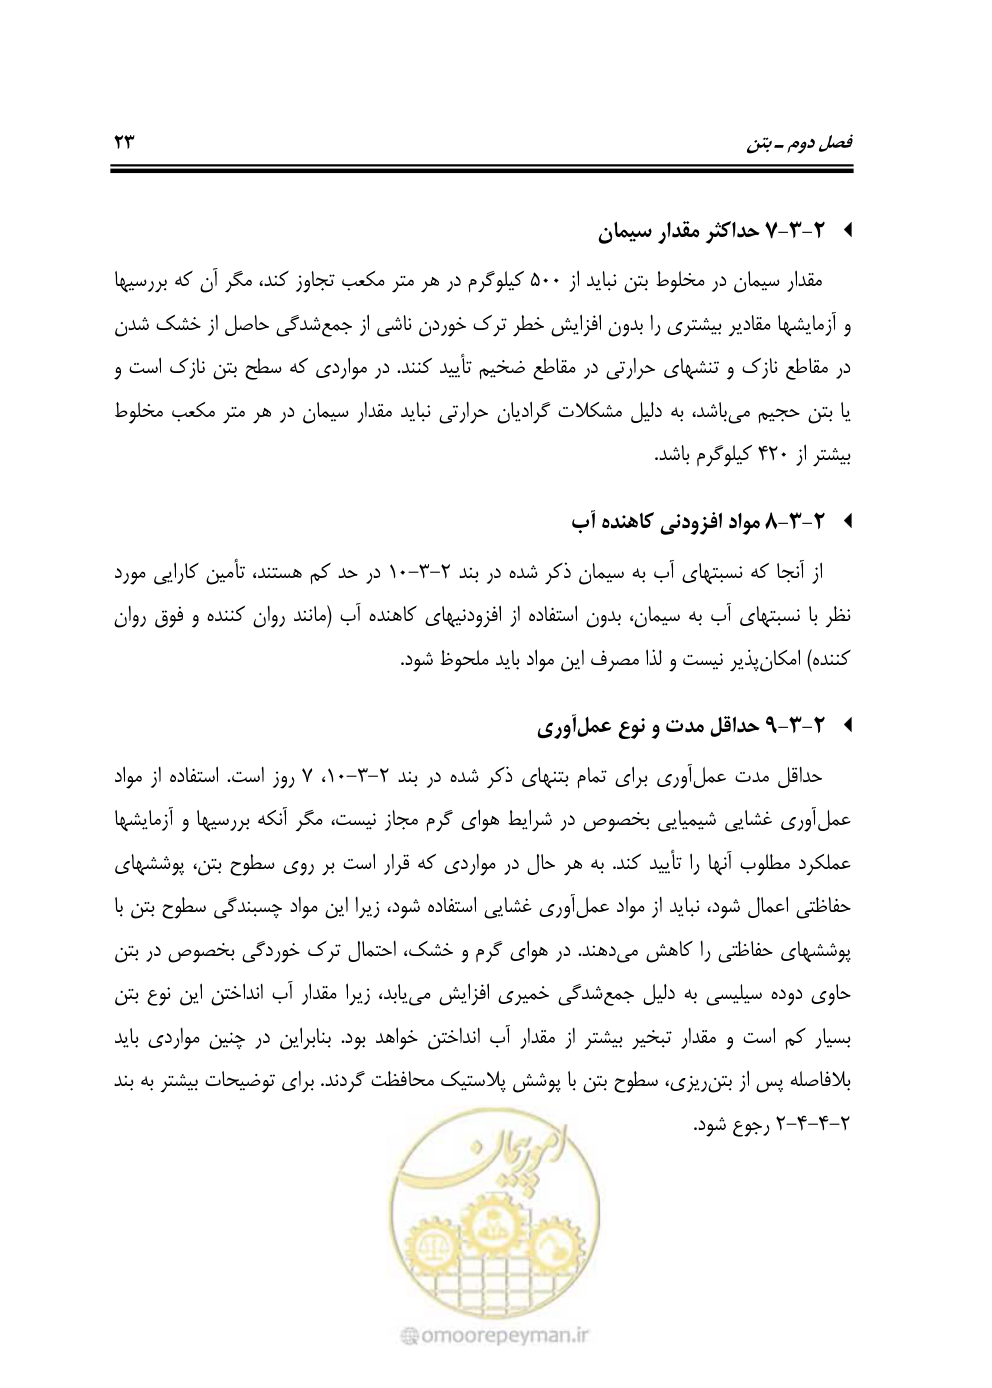 فصل دوم ـ بتن
۲۳
۲-۳-۷ حداکثر مقدار سیمان
مقدار سیمان در مخلوط بتن نباید از ۵۰۰ کیلوگرم در هر متر مکعب تجاوز کند، مگر آن که بررسیها
و آزمایشها مقادیر بیشتری را بدون افزایش خطر ترک خوردن ناشی از جمع‌شدگی حاصل از خشک شدن
در مقاطع نازک و تنشهای حرارتی در مقاطع ضخیم تأیید کنند. در مواردی که سطح بتن نازک است و
یا بتن حجیم می‌باشد، به دلیل مشکلات گرادیان حرارتی نباید مقدار سیمان در هر متر مکعب مخلوط
بیشتر از ۴۲۰ کیلوگرم باشد.
۲-۳-۸ مواد افزودنی کاهنده آب
از آنجا که نسبتهای آب به سیمان ذکر شده در بند ۲-۳-۱۰ در حد کم هستند، تأمین کارایی مورد
نظر با نسبتهای آب به سیمان، بدون استفاده از افزودنیهای کاهنده آب (مانند روان کننده و فوق روان
کننده) امکان‌پذیر نیست و لذا مصرف این مواد باید ملحوظ شود.
۲-۳-۹ حداقل مدت و نوع عمل‌آوری
حداقل مدت عمل‌آوری برای تمام بتنهای ذکر شده در بند ۲-۳-۱۰، ۷ روز است. استفاده از مواد
عمل‌آوری غشایی شیمیایی بخصوص در شرایط هوای گرم مجاز نیست، مگر آنکه بررسیها و آزمایشها
عملکرد مطلوب آنها را تأیید کند. به هر حال در مواردی که قرار است بر روی سطوح بتن، پوششهای
حفاظتی اعمال شود، نباید از مواد عمل‌آوری غشایی استفاده شود، زیرا این مواد چسبندگی سطوح بتن با
پوششهای حفاظتی را کاهش می‌دهند. در هوای گرم و خشک، احتمال ترک خوردگی بخصوص در بتن
حاوی دوده سیلیسی به دلیل جمع‌شدگی خمیری افزایش می‌یابد، زیرا مقدار آب انداختن این نوع بتن
بسیار کم است و مقدار تبخیر بیشتر از مقدار آب انداختن خواهد بود. بنابراین در چنین مواردی باید
بلافاصله پس از بتن‌ریزی، سطوح بتن با پوشش پلاستیک محافظت گردند. برای توضیحات بیشتر به بند
۲-۴-۴-۲ رجوع شود.
امور پیمان
@omoorepeyman.ir